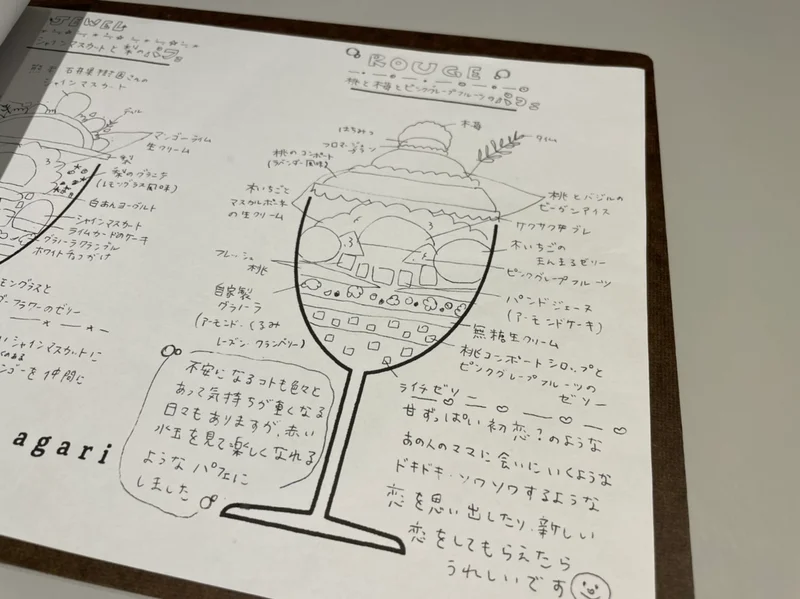 JEWEL
シャインマスカットと梨のパフェ
石井果樹園さんの
シャインマスカット
マンゴーライム
生クリーム
梨
梨のグラニテ
(レモングラス風味)
白あんヨーグルト
シャインマスカット
ライムカードのケーキ
グラノーラクランブル
ホワイトチョコがけ
モングラスと
ーフラワーのゼリー
シャインマスカットに
ンゴーを仲間に
agari
ROUGE
桃と木苺とピンクグレープフルーツのパフェ
はちみつ
木苺
フロマージュブラン
タイム
桃のコンポート
(ラベンダー風味)
木いちごと
マスカルポーネ
の生クリーム
フレッシュ
桃
自家製
グラノーラ
(アーモンド・くるみ
レーズン・クランベリー)
桃とバジルの
ビーガンアイス
サクサクサブレ
木いちごの
まんまるゼリー
ピンクグレープフルーツ
パンドジェーヌ
(アーモンドケーキ)
無糖生クリーム
桃コンポートシロップと
ピンクグレープフルーツの
ゼリー
ライチゼリー
不安になるコトも色々と
あって気持ちが重くなる
日々もありますが、赤い
水玉を見て楽しくなれる
ようなパフェに
しました
甘ずっぱい初恋?のような
あの人のママに会いにいくような
ドキドキ・ソワソワするような
恋を思い出したり、新しい
恋をしてもらえたら
うれしいです